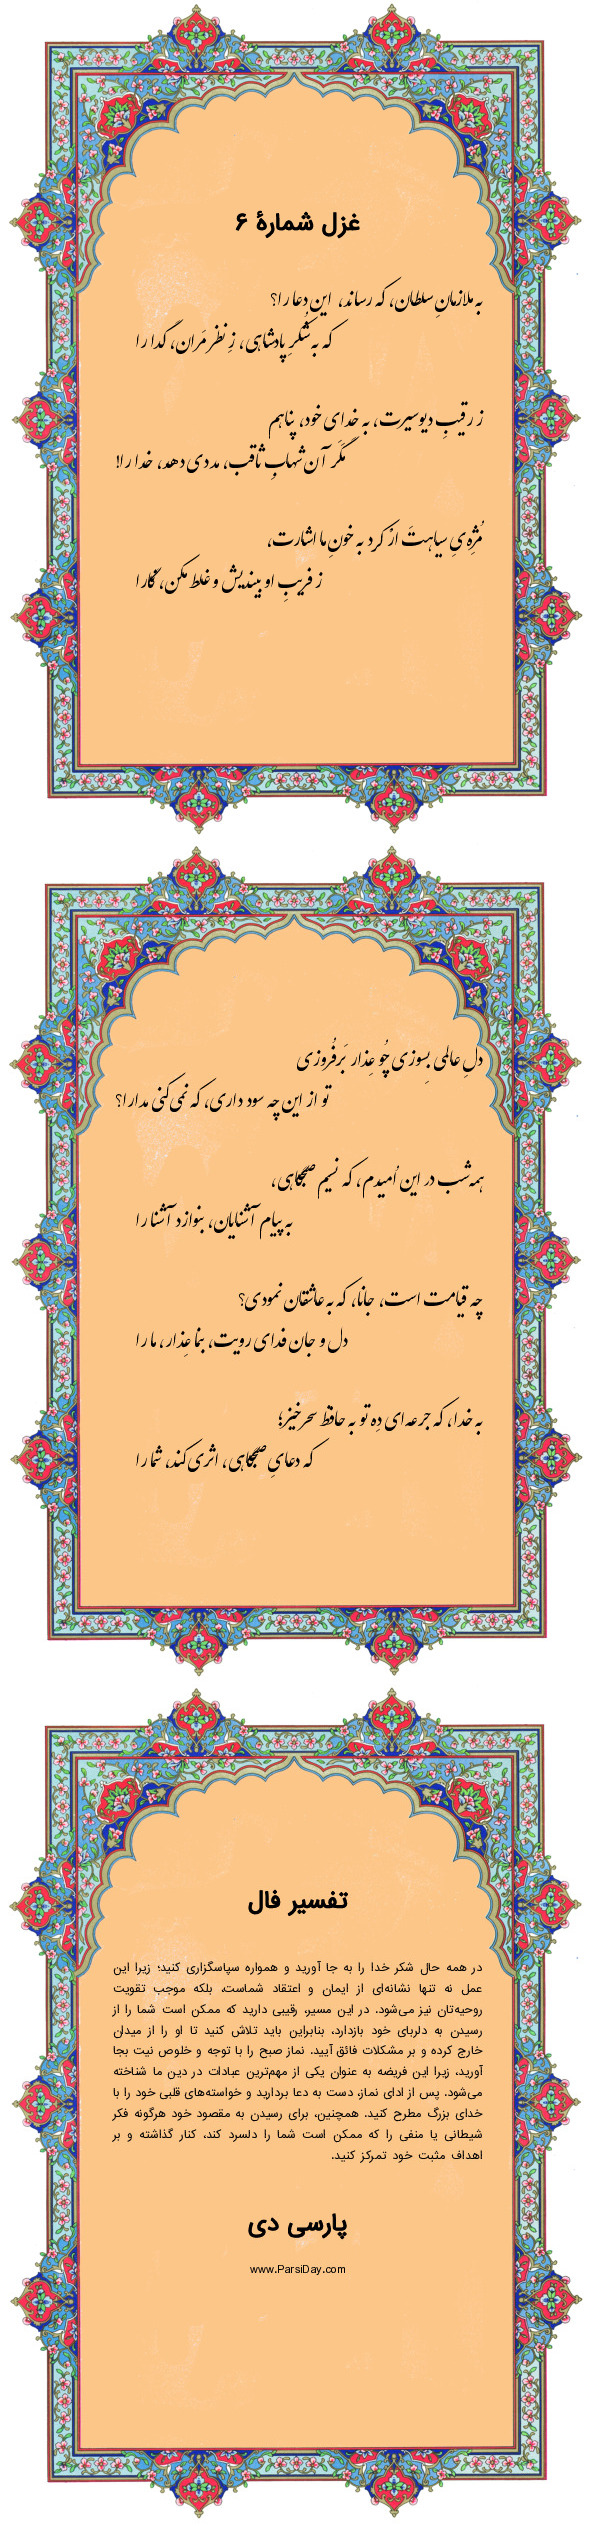 غزل شمارهٔ ۶
به ملازمانِ سلطان، که رساند، این دعا را؟
که به شُکرِ پادشاهی، زِ نظر مَران، گدا را
ز رقیبِ دیوسیرت، به خدای خود، پناهم
مگَر آن شهابِ ثاقب، مددی دهد، خدا را!
مُژِه‌یِ سیاهتَ ارْ کرد به خونِ ما اشارت،
ز فریبِ او بیندیش و غلط مکن، نگارا
دلِ عالمی بِسوزی چُو عِذار بَرفُروزی
تو از این چه سود داری، که نمی‌کنی مدارا؟
همه‌شب در این اُمیدم، که نسیم صبحگاهی،
به پیام آشنایان، بنوازد آشنا را
چه قیامت است، جانا، که به عاشقان نمودی؟
دل و جان فدای رویت، بنما عِذار، ما را
به خدا، که جرعه‌ای دِه تو به حافظ سحرخیز؛
که دعایِ صبحگاهی، اثری کند، شما را
تفسیر فال
در همه حال شکر خدا را به جا آورید و همواره سپاسگزاری کنید؛ زیرا این
عمل نه تنها نشانه‌ای از ایمان و اعتقاد شماست، بلکه موجب تقویت
روحیه‌تان نیز می‌شود. در این مسیر، رقیبی دارید که ممکن است شما را از
رسیدن به دلربای خود بازدارد، بنابراین باید تلاش کنید تا او را از میدان
خارج کرده و بر مشکلات فائق آیید. نماز صبح را با توجه و خلوص نیت بجا
آورید، زیرا این فریضه به عنوان یکی از مهم‌ترین عبادات در دین ما شناخته
می‌شود. پس از ادای نماز، دست به دعا بردارید و خواسته‌های قلبی خود را با
خدای بزرگ مطرح کنید. همچنین، برای رسیدن به مقصود خود هرگونه فکر
شیطانی یا منفی را که ممکن است شما را دلسرد کند، کنار گذاشته و بر
اهداف مثبت خود تمرکز کنید.
پارسی دی
www.ParsiDay.com